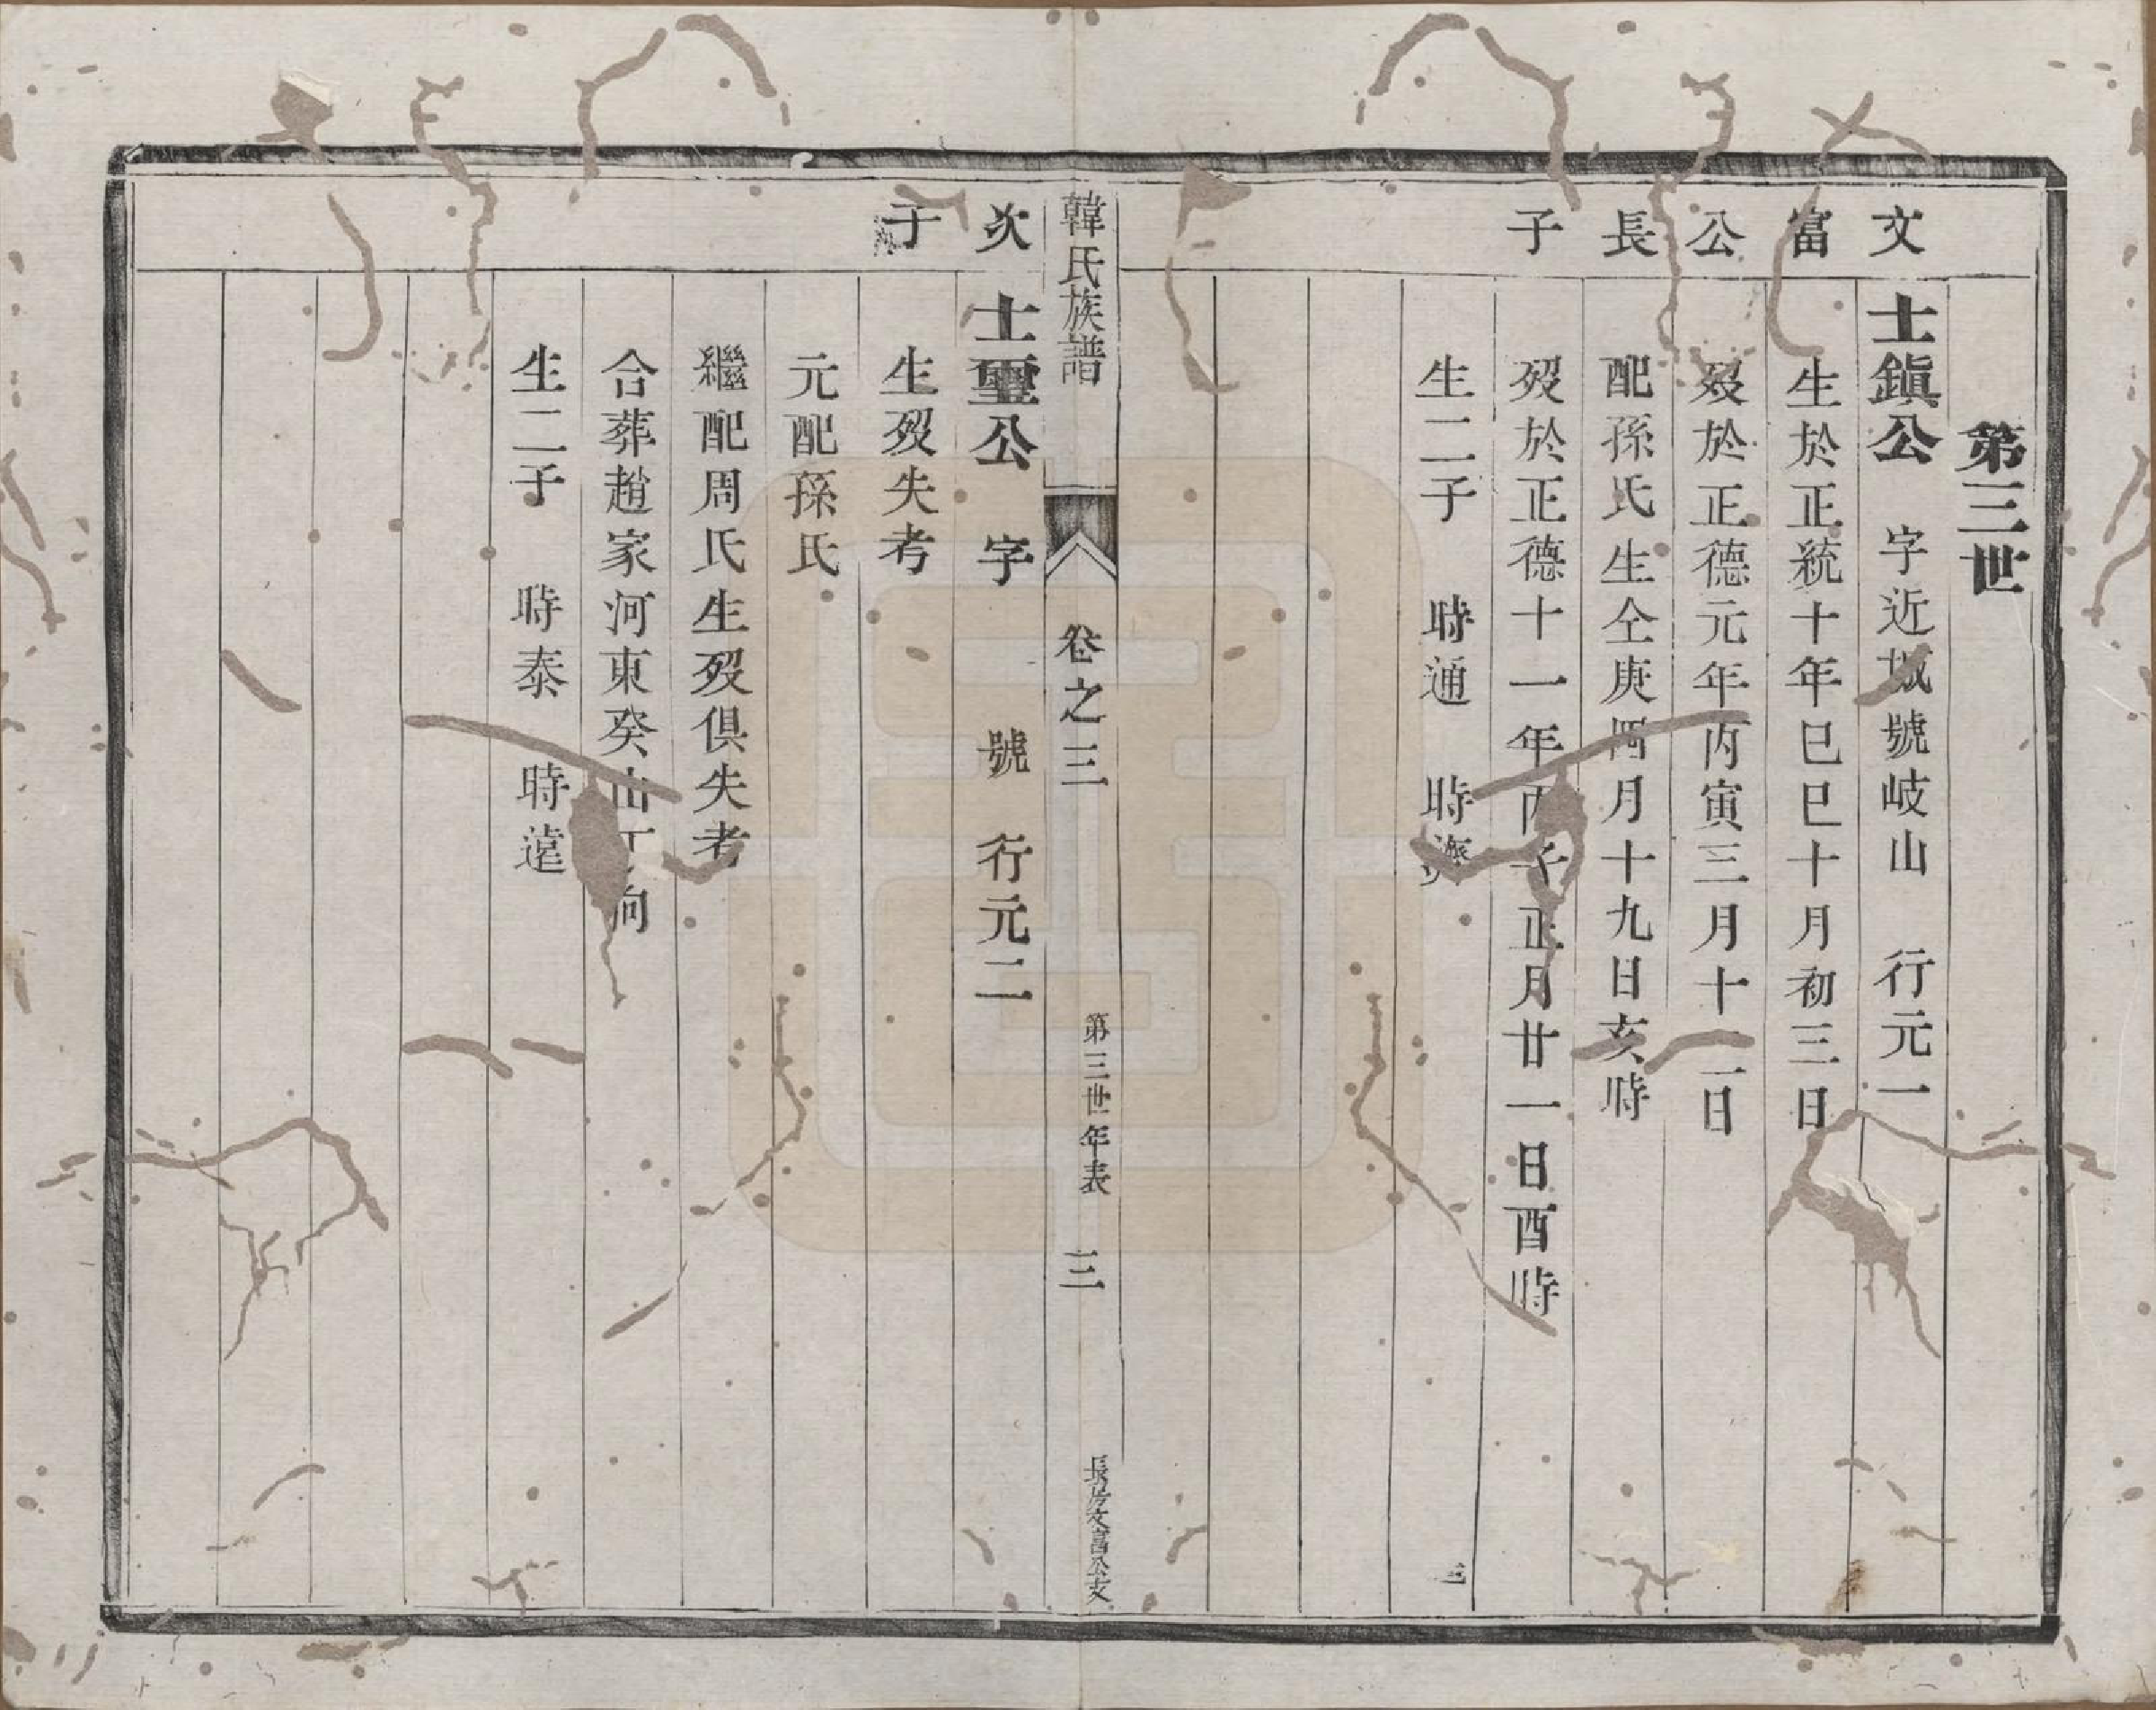 第三世
文富公長子
士鎮公 字近城號岐山 行元一
生於正統十年巳巳十月初三日
歿於正德元年丙寅三月十二日
配孫氏生仝庚四月十九日亥時
歿於正德十一年丙子正月廿一日酉時
生二子 時通 時
三
韓氏族譜 卷之三 第三世年表 三 長房文富公支
次子
士璽公 字 號 行元二
生歿失考
元配孫氏
繼配周氏生歿俱失考
合葬趙家河東癸山丁向
生二子 時泰 時遠